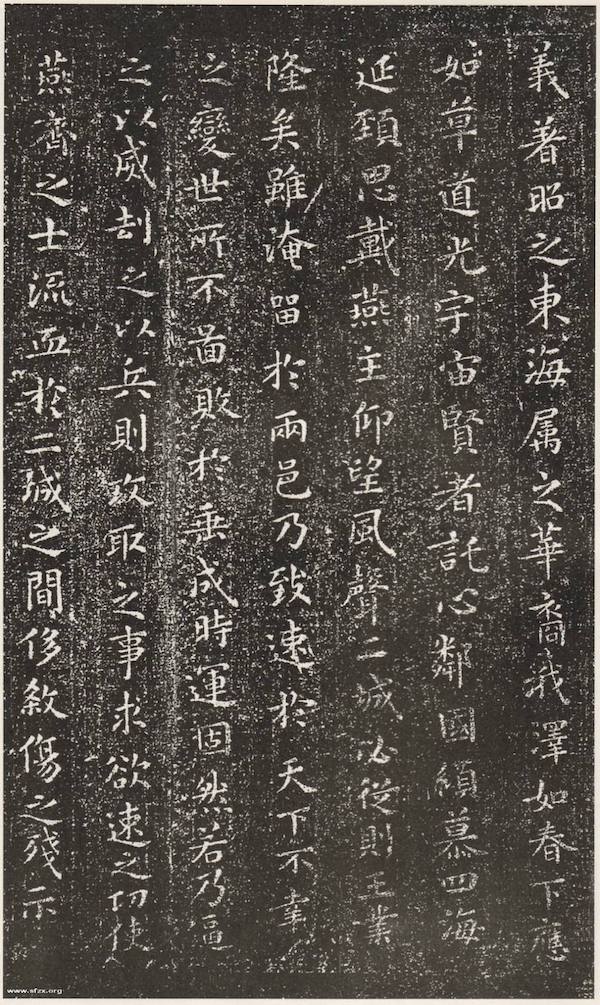 義著昭之東海属之華裔我澤如春下應
如草道光宇宙賢者託心鄰國傾慕四海
延頸思戴燕主仰望風聲二城必從則王業
隆矣雖淹留於兩邑乃致速於天下不幸
之變世所不啚敗於垂成時運固然若乃逼
之以威劫之以兵則攻取之事求欲速之功使
燕齊之士流血於二城之間侈敘傷之殘示
www.sfzx.org